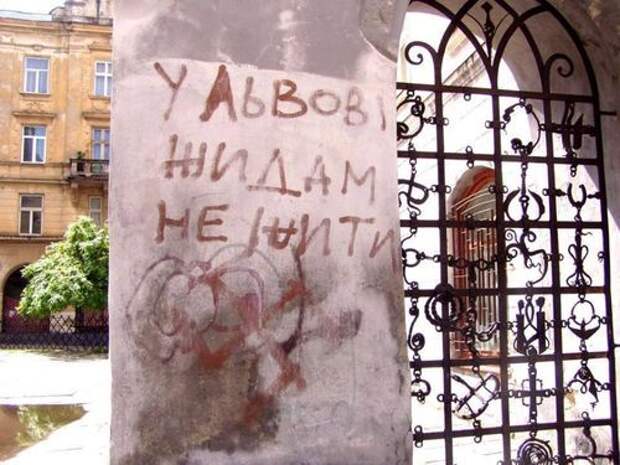 У ЛЬВОВІ
ЖИДАМ
НЕ ЖИТИ